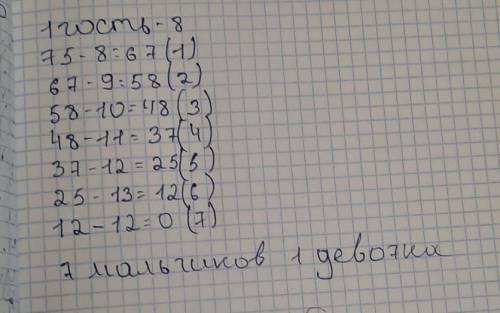 1 гость - 8
75 - 8 = 67 (1)
67 - 9 = 58 (2)
58 - 10 = 48 (3)
48 - 11 = 37 (4)
37 - 12 = 25 (5)
25 - 13 = 12 (6)
12 - 12 = 0 (7)
7 мальчиков 1 девочка